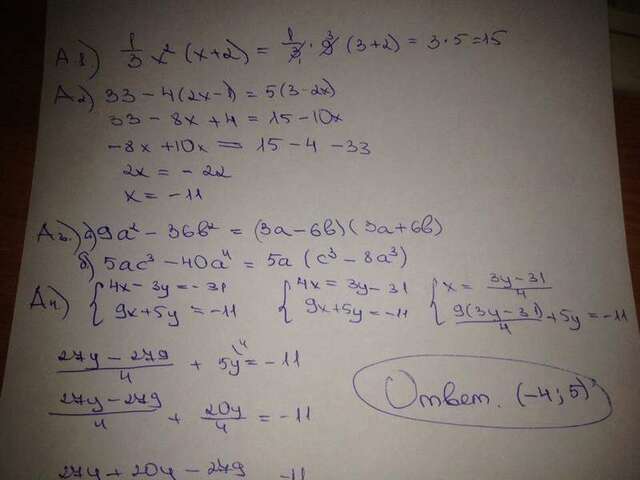 А1.) 1/3 x² (x+2) = 1/3 · 9 (3+2) = 3·5=15
А2) 33 – 4(2x–1) = 5(3–2x)
33 – 8x + 4 = 15 – 10x
–8x + 10x = 15 – 4 – 33
2x = – 22
x = – 11
А3.) а) 9a² – 36b² = (3a – 6b)(3a + 6b)
б) 5ac³ – 40a⁴ = 5a (c³ – 8a³)
А4) { 4x – 3y = – 31 { 4x = 3y – 31 { x = (3y – 31)/4
9x + 5y = – 11 9x + 5y = – 11 9(3y – 31)/4 + 5y = – 11
(27y – 279)/4 + 5y\4 = – 11
(27y – 279)/4 + 20y/4 = – 11
Ответ. (–4; 5)
27y + 20y – 279 11